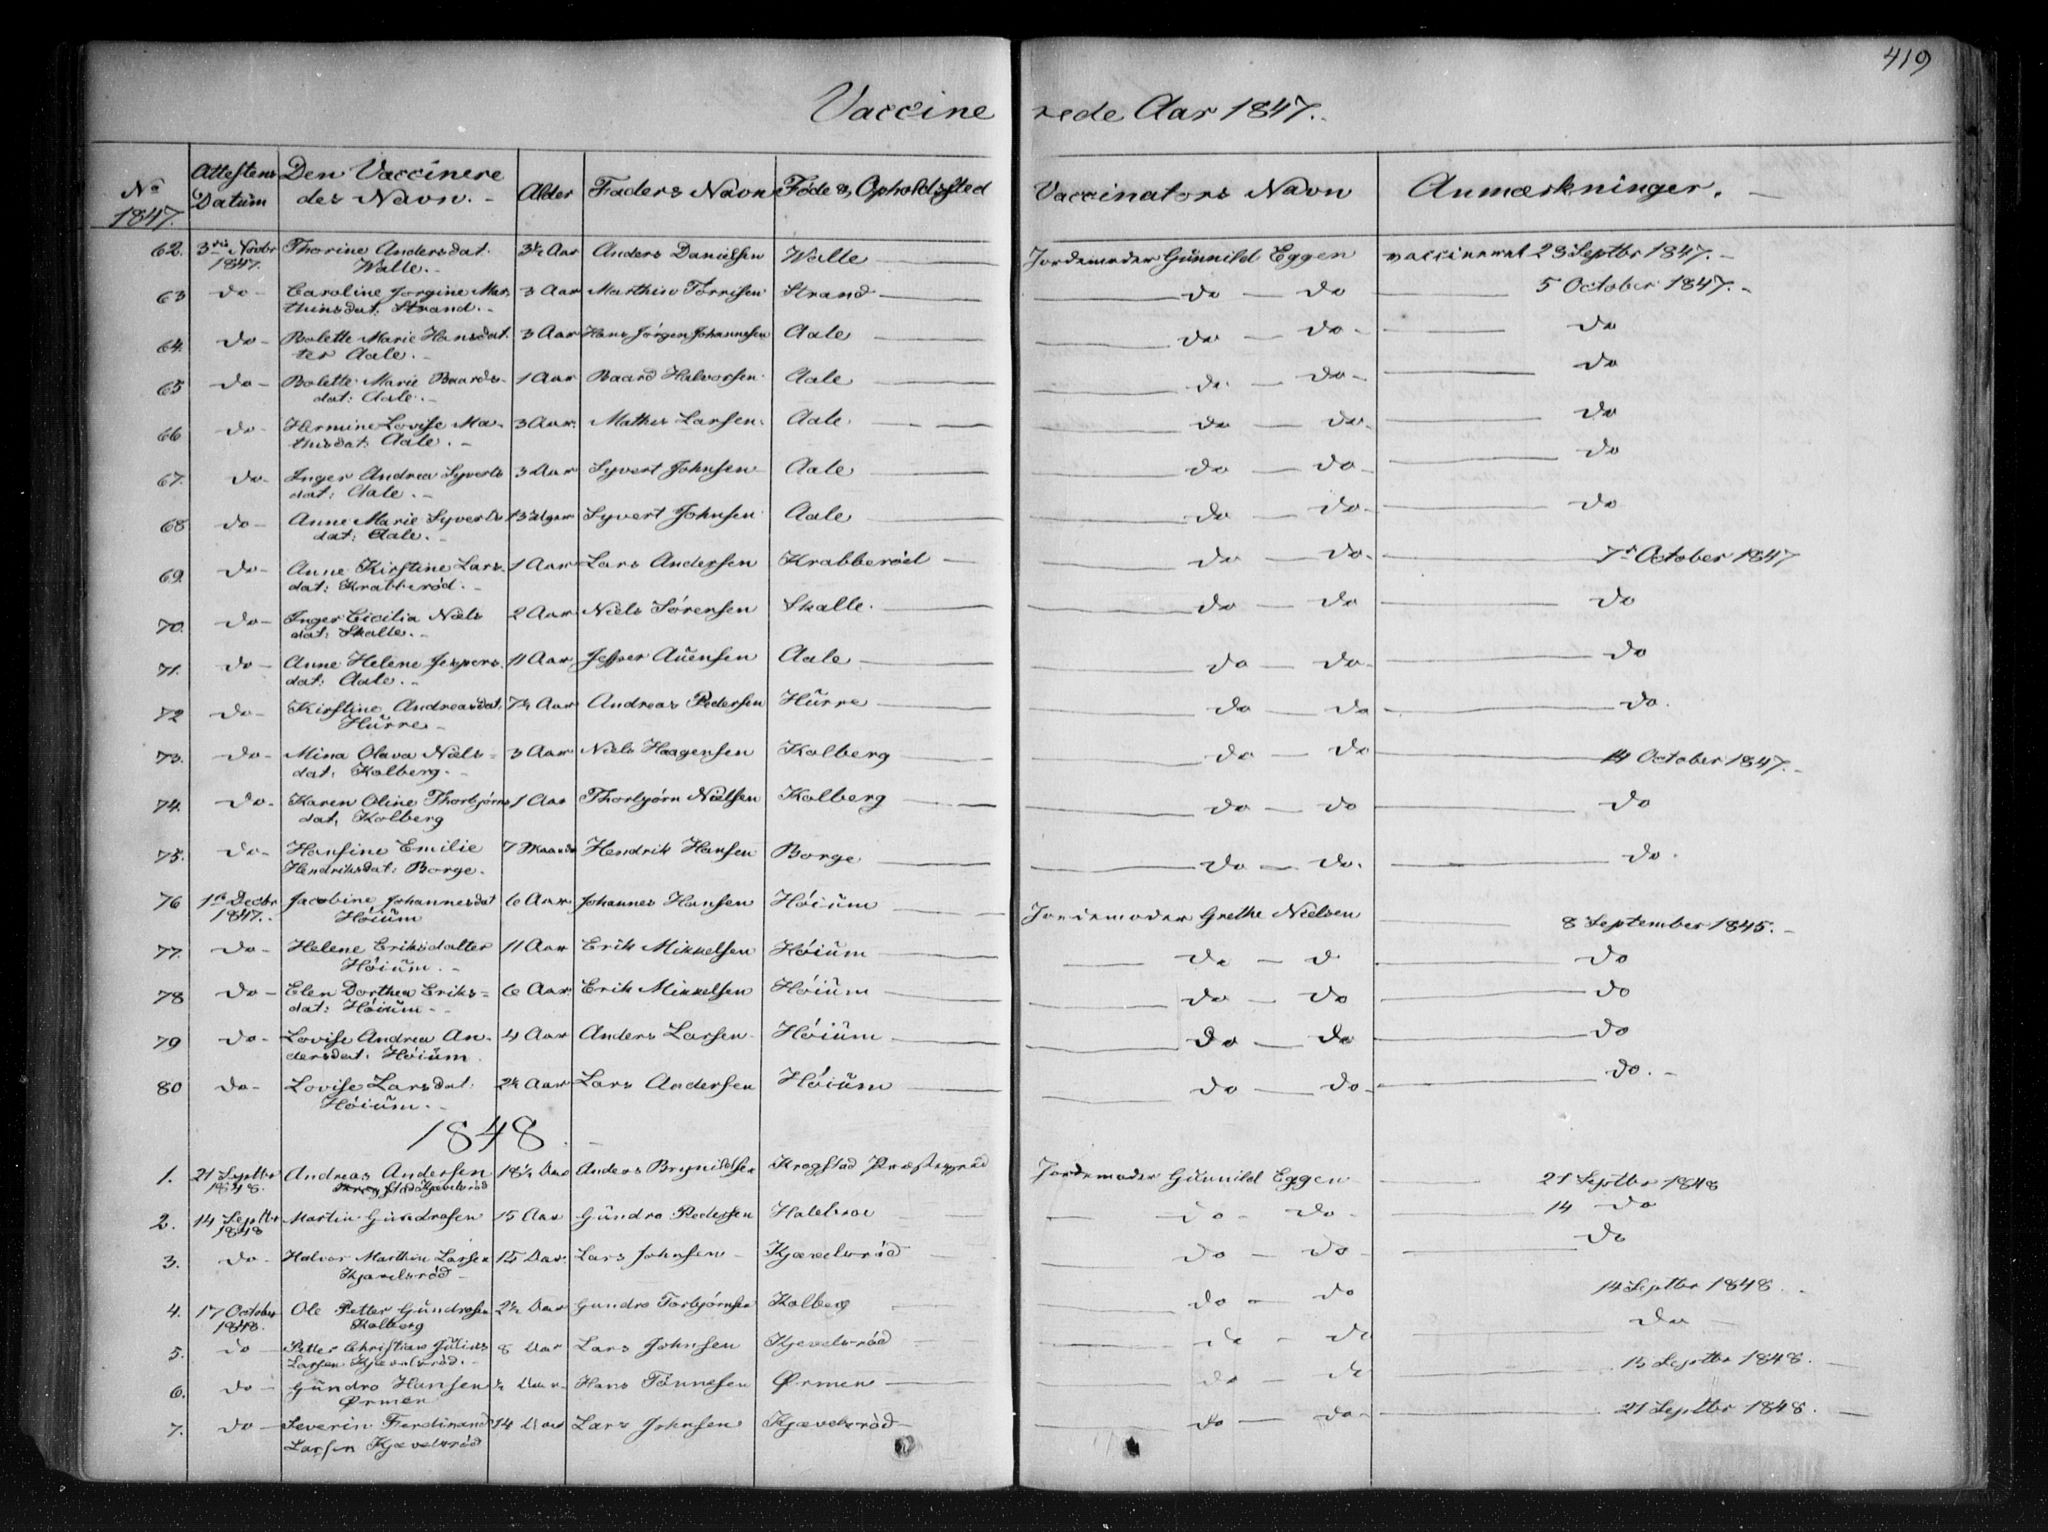 419
Vaccinerede Aar 1847.
No 1847. Attestens Datum Den Vaccineredes Navn. Alder Faders Navn Føde & Opholdssted Vaccinators Navn Anmærkninger.
62. 3die Novbr 1847. Thorine Andersdat. Walle. 3½ Aar Anders Danielsen Walle Jordemoder Günnild Eggen vaccineret 23 Septbr 1847.
63 do Caroline Jorgine Marthinsdat. Strand. 3 Aar Marthin Torrisen Strand do do 5 October 1847.
64. do Bolette Marie Hansdatter Aale. 3 Aar Hans Jørgen Johannesen Aale do do do
65 do Bolette Marie Baardsdat: Aale. 1 Aar Baard Halvorsen Aale do do do
66 do Hermine Lovise Mathisdat: Aale. 3 Aar Mathis Larsen. Aale do do do
67. do Inger Andrea Syvertsdat: Aale. 3 Aar Syvert Johnsen Aale do do do
68 do Anne Marie Syvertsdat: Aale. 13 Uger Syvert Johnsen Aale do do do
69. do Anne Kirstine Larsdat: Krabberød. 1 Aar Lars Andersen Krabberød do do 7de October 1847
70. do Inger Cicilia Nielsdat: Skalle. 2 Aar Niels Sørensen Skalle. do do do
71. do Anne Helene Jespersdat: Aale. 11 Aar Jesper Auensen Aale do do do
72 do Kirstine Andreasdat. Hürre 7½ Aar Andreas Pedersen Hürre do do do.
73. do Mina Olava Nielsdat: Kolberg. 3 Aar Niels Haagensen Kolberg do do 14 October 1847.
74. do Karen Oline Thorbjørnsdat, Kolberg 1 Aar Thorbjørn Nielsen Kolberg do do do
75. do Hansine Emilie Hendriksdat: Borge. 7 Maaneder Hendrik Hansen Borge do do. do.
76 1ste Decbr 1847. Jacobine Johannesdat Høiüm 6 Aar Johannes Hansen Høiüm Jordemoder Grethe Nielsen 8 September 1845.
77. do Helene Eriksdatter Høiüm. 11 Aar Erik Mikkelsen Høiüm do d do
78 do Elen Dorthea Eriksdat: Høiüm 6 Aar. Erik Mikkelsen Høiüm do do do
79 do Lovise Andrea Andersdat. Høiüm. 4 Aar Anders Larsen Høiüm do do do
80 do Lovise Larsdat: Høiüm. 2½ Aar Lars Andersen Høiüm do do do.
1848.
1. 21 Septbr 1848. Andreas Andersen Kjævelsrød 18½ Aar Anders Brynildsen Krogstad Jordemoder Günnild Eggen 21 Septbr 1848
2. 14 Septbr 1848 Martin Gundrosen 15 Aar Gündro Pedersen do do 14 do
3. do Halvor Marthin Larsen Kjævelsrød 15 Aar. Lars Johnsen Kjævelsrød do do do
4. 17 October 1848. Ole Petter Gündrosen Kolberg 2½ Aar Gundro Torbjørnsen Kolberg do do 14 Septbr 1848.
5. do Petter Christian Julius Larsen Kjævelsrød. 8 Aar Lars Johnsen Kjævelsrød do do do
6. do Gündro Hansen Ørmen ½ Aar Hans Tönnesen Ørmen do do 15 Septbr 1848.
7. do Severin Ferdinand Larsen Kjævelsrød 14 Aar Lars Johnsen Kjævelsrød do do 21 Septbr 1848.